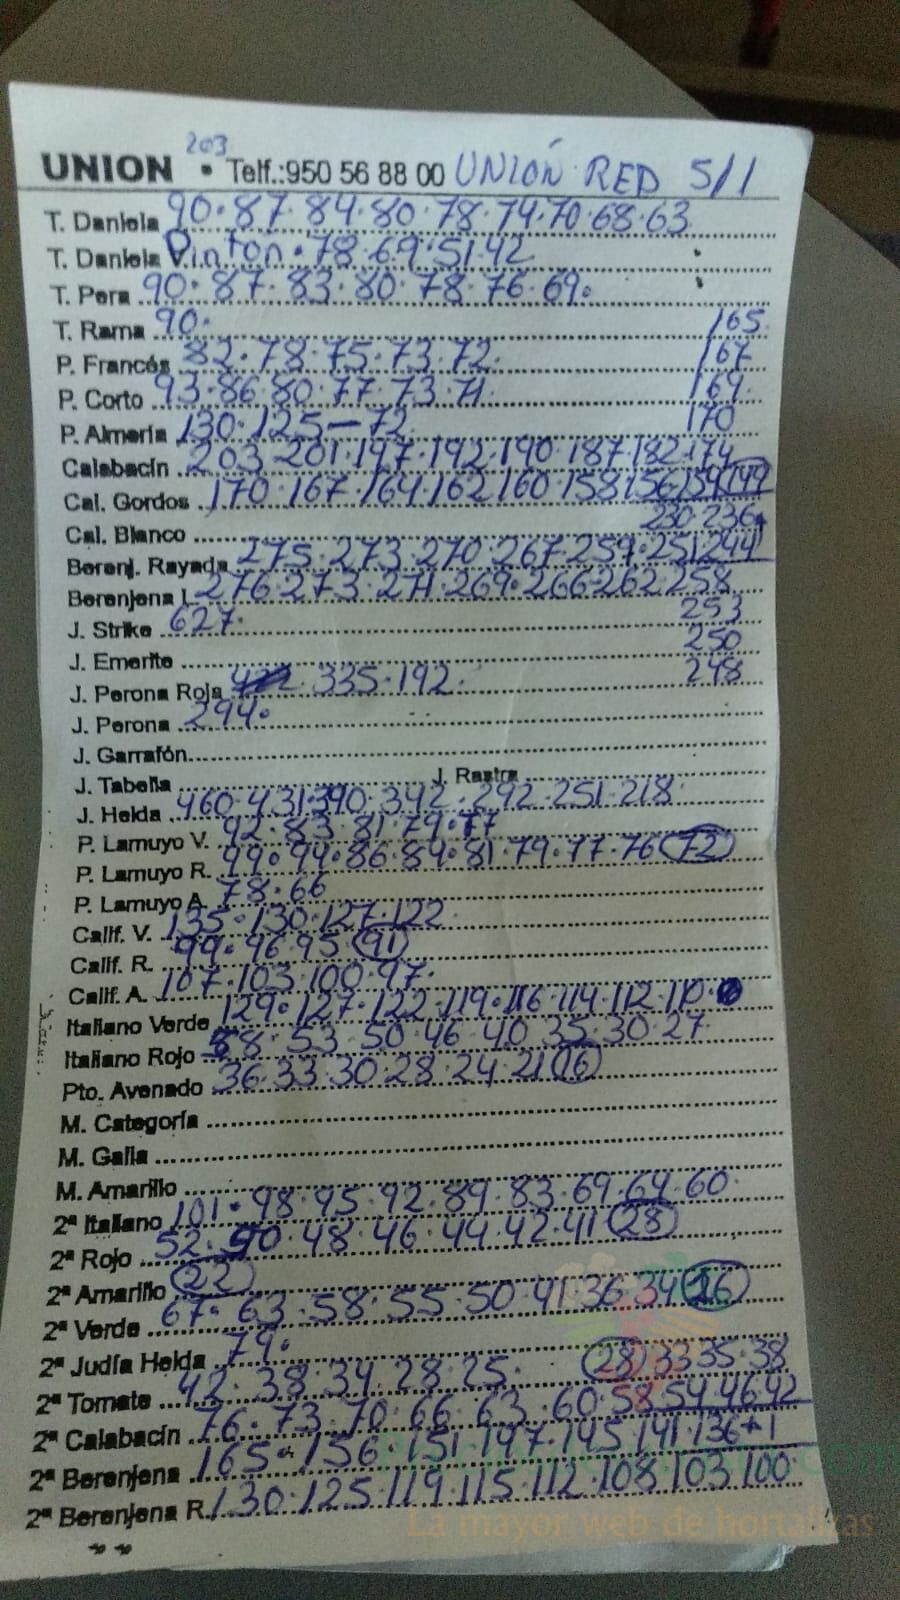 203
UNION • Telf.:950 56 88 00 UNIÓN RED 5/1
T. Daniela 90·87·84·80·78·74·70·68·63
T. Daniela Pinton·78·69·51·42
T. Pera 90·87·83·80·78·76·69·
T. Rama 90· 165
P. Francés 82·78·75·73·72· 167
P. Corto 93·86·80·77·73·71· 169
P. Almería 130·125–72 170
Calabacín 203 201·197·192·190·187·182·174
Cal. Gordos 170·167·164·162·160·158·156·154 149
Cal. Blanco 230·236
Berenj. Rayada 275·273·270·267·259·251·244
Berenjena L 276·273·271·269·266·262·258
J. Strike 627· 253
J. Emerite 250
J. Perona Roja 335·192· 248
J. Perona 294·
J. Garrafón
J. Tabella J. Rastra
J. Helda 460·431·390·342·292·251·218
P. Lamuyo V. 92·83·81·79·77
P. Lamuyo R. 99·94·86·84·81·79·77·76 72
P. Lamuyo A. 78·66
Calif. V. 135·130·127·122
Calif. R. 99·96·95 91
Calif. A. 107·103·100·97·
Italiano Verde 129·127·122·119·116·114·112·110·
Italiano Rojo 58·53·50·46·40·35·30·27
Pto. Avenado 36·33·30·28·24·21 16
M. Categoría
M. Galia
M. Amarillo
2ª Italiano 101·98·95·92·89·83·69·64·60·
2ª Rojo 52·50·48·46·44·42·41 28
2ª Amarillo 22
2ª Verde 67·63·58·55·50·41·36·34 26
2ª Judía Helda 79·
2ª Tomate 42·38·34·28·25· 28 33 35·38
2ª Calabacín 76·73·70·66·63·60·58 54 46 42
2ª Berenjena 165·156·151·147·145·141·136+1
2ª Berenjena R. 130·125·119·115·112·108·103·100·
La mayor web de hortalizas